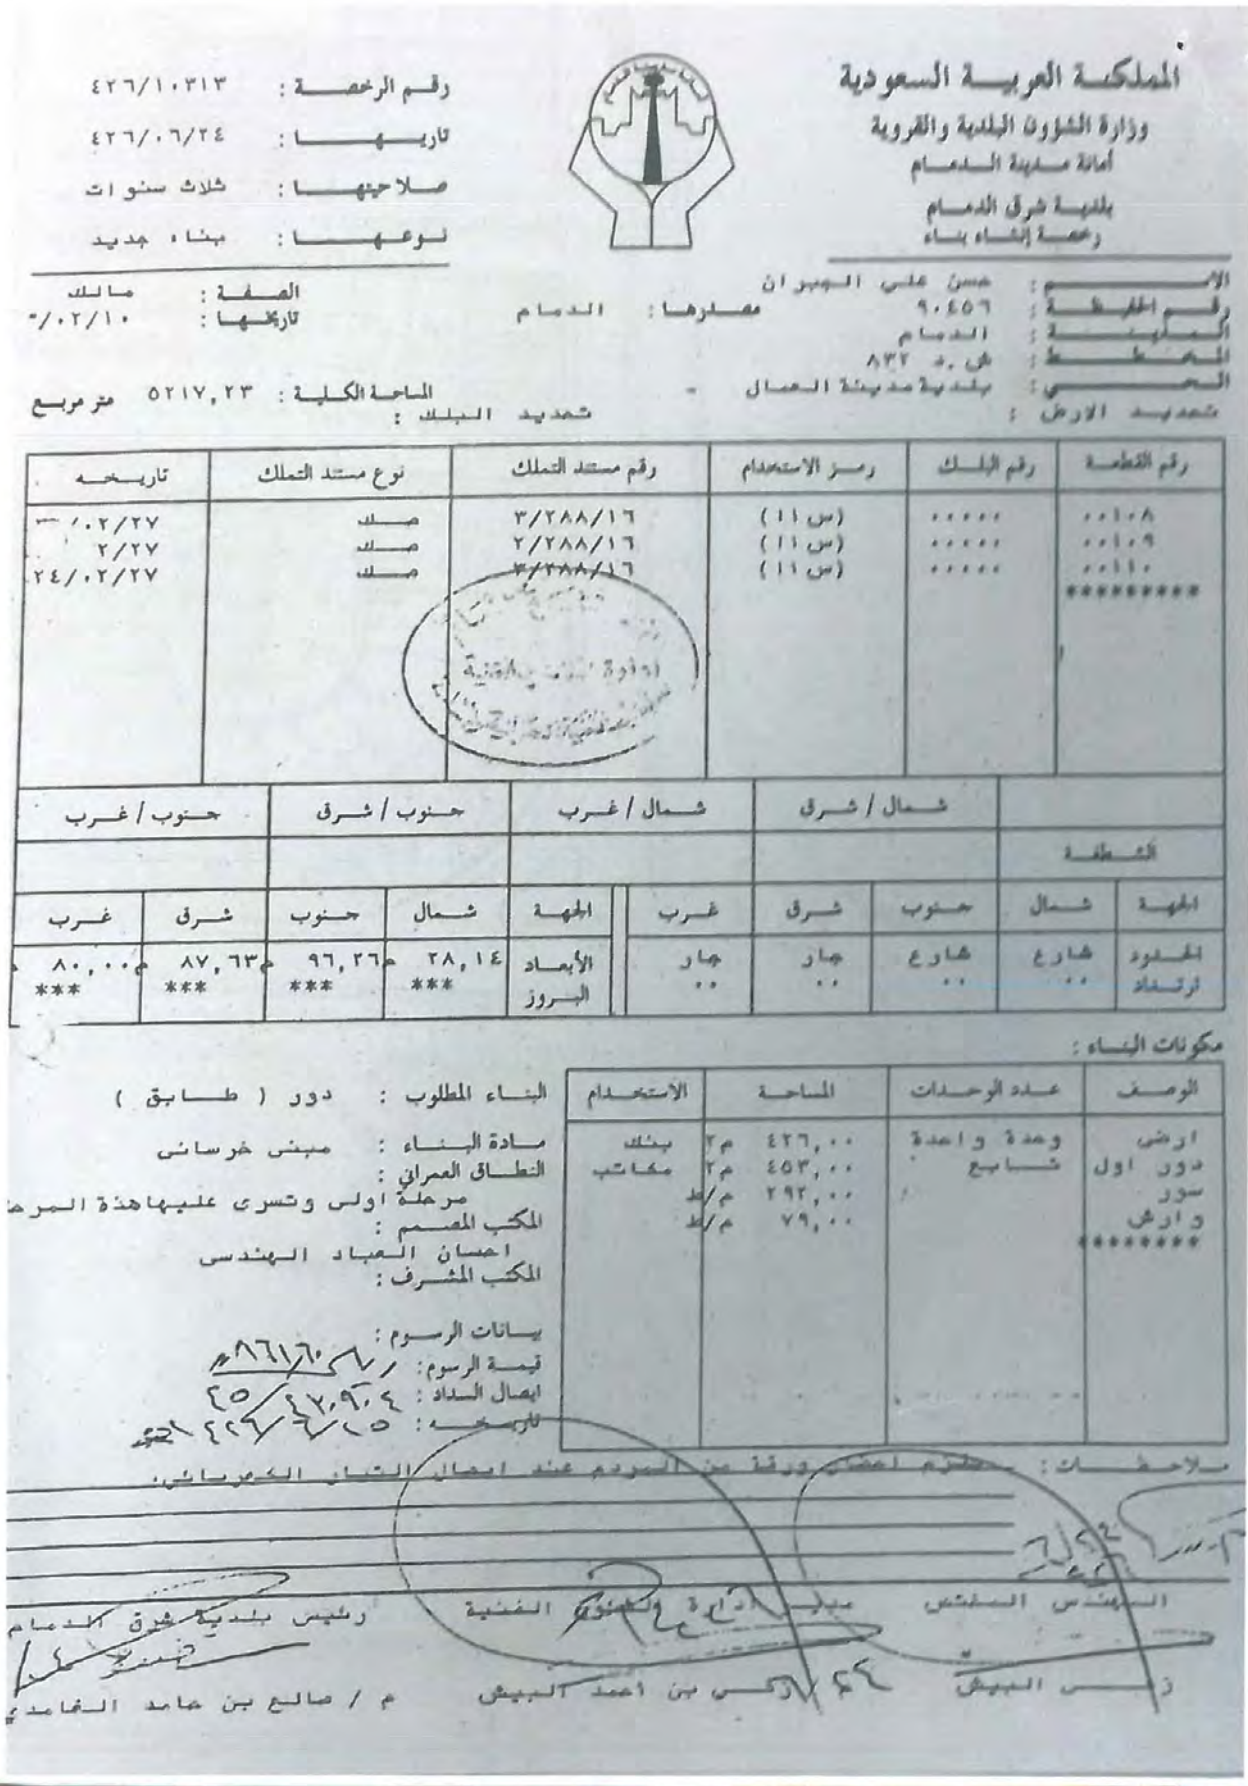 المملكة العربية السعودية
وزارة الشؤون البلدية والقروية
أمانة مدينة الدمام
بلدية شرق الدمام
رخصة إنشاء بناء
رقم الرخصة : ٤٢٦/١٠٣١٣
تاريخها : ٤٢٦/٠٦/٢٤
صلاحيتها : ثلاث سنوات
نوعها : بناء جديد
الاسم : حسن علي الجبران الصفة : مالك
رقم الحفيظة : ٩٠٤٥٦ مصدرها : الدمام تاريخها : /٠٢/١٠
المدينة : الدمام
المخطط : ش.د ٨٣٢
الحي : بلدية مدينة العمال - المساحة الكلية : ٥٢١٧,٢٣ متر مربع
تحديد الارض : تحديد البلك :
رقم القطعة رقم البلك رمز الاستخدام رقم مستند التملك نوع مستند التملك تاريخه
٠٠١٠٨ ٠٠٠٠٠ (س ١١) ٣/٢٨٨/١٦ صك ٠٢/٢٧
٠٠١٠٩ ٠٠٠٠٠ (س ١١) ٢/٢٨٨/١٦ صك ٢/٢٧
٠٠١١٠ ٠٠٠٠٠ (س ١١) ٣/٢٨٨/١٦ صك ٢٤/٠٢/٢٧
*********
شمال / شرق شمال / غرب جنوب / شرق جنوب / غرب
الشطفة
الجهة شمال جنوب شرق غرب الجهة شمال جنوب شرق غرب
الحدود شارع شارع جار جار الأبعاد ٢٨,١٤ م ٩٦,٢٦ م ٨٧,٦٣ م ٨٠,٠٠ م
ارتداد ٠٠ ٠٠ ٠٠ ٠٠ البروز *** *** *** ***
مكونات البناء :
الوصف عدد الوحدات المساحة الاستخدام
ارضى وحدة واحدة ٤٢٦,٠٠ م٢ بنك
دور اول شايع ٤٥٣,٠٠ م٢ مكاتب
سور ٢٩٢,٠٠ م/ط
وارش ٧٩,٠٠ م/ط
********
البناء المطلوب : دور ( طابق )
مادة البناء : مبنى خرسانى
النطاق العمراني :
مرحلة اولى وتسرى عليها هذة
المكتب المصمم :
احسان العباد الهندسى
المكتب المشرف :
بيانات الرسوم :
قيمة الرسوم :
ايصال السداد :
تاريخه :
ملاحظات : ملزم احضار ورقة من المردم عند ايصال التيار الكهربائى.
المهندس المختص مدير ادارة الشئون الفنية رئيس بلدية شرق الدمام
زكى البيش م / زكى بن أحمد البيش م / صالح بن حامد الغامدي